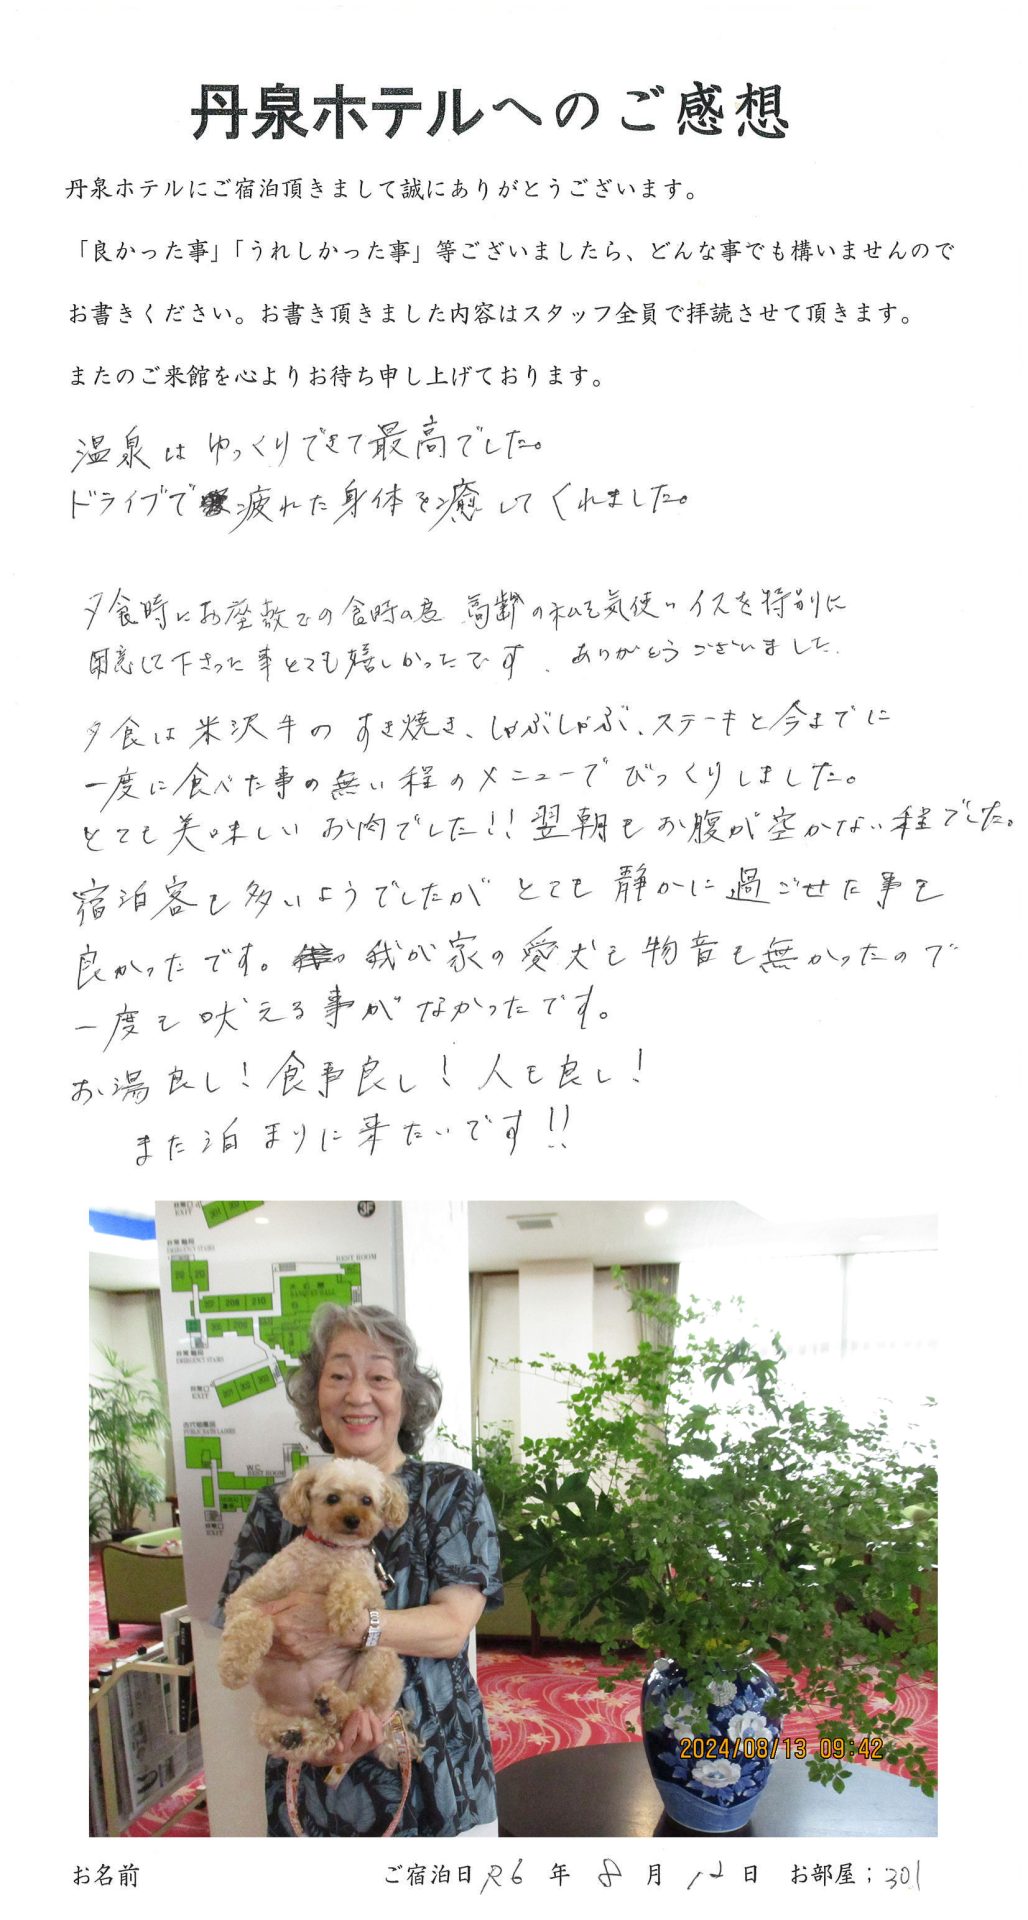 丹泉ホテルへのご感想
丹泉ホテルにご宿泊頂きまして誠にありがとうございます。
「良かった事」「うれしかった事」等ございましたら、どんな事でも構いませんので
お書きください。お書き頂きました内容はスタッフ全員で拝読させて頂きます。
またのご来館を心よりお待ち申し上げております。
温泉はゆっくりできて最高でした。
ドライブで疲れた身体を癒してくれました。
夕食時にお座敷での食時の度 高齢の私を気使いイスを特別に
用意して下さった事とても嬉しかったです。ありがとうございました。
夕食は米沢牛のすき焼き、しゃぶしゃぶ、ステーキと今までに
一度に食べた事の無い程のメニューでびっくりしました。
とても美味しいお肉でした!! 翌朝もお腹が空かない程でした。
宿泊客も多いようでしたがとても静かに過ごせた事も
良かったです。我が家の愛犬も物音も無かったので
一度も吠える事がなかったです。
お湯良し!食事良し!人も良し!
また泊まりに来たいです!!
非常口
EXIT
301
3F
非常階段
EMERGENCY STAIRS
REST ROOM
212
211
208
210
BANQUET HALL
205
206
非常階段
EMERGENCY STAIRS
非常口
EXIT
301
302
303
PUBLIC BATH LADIES
W.C.
REST ROOM
非常口
EXIT
2024/08/13 09:42
お名前 ご宿泊日 R6 年 8 月 12 日 お部屋;301